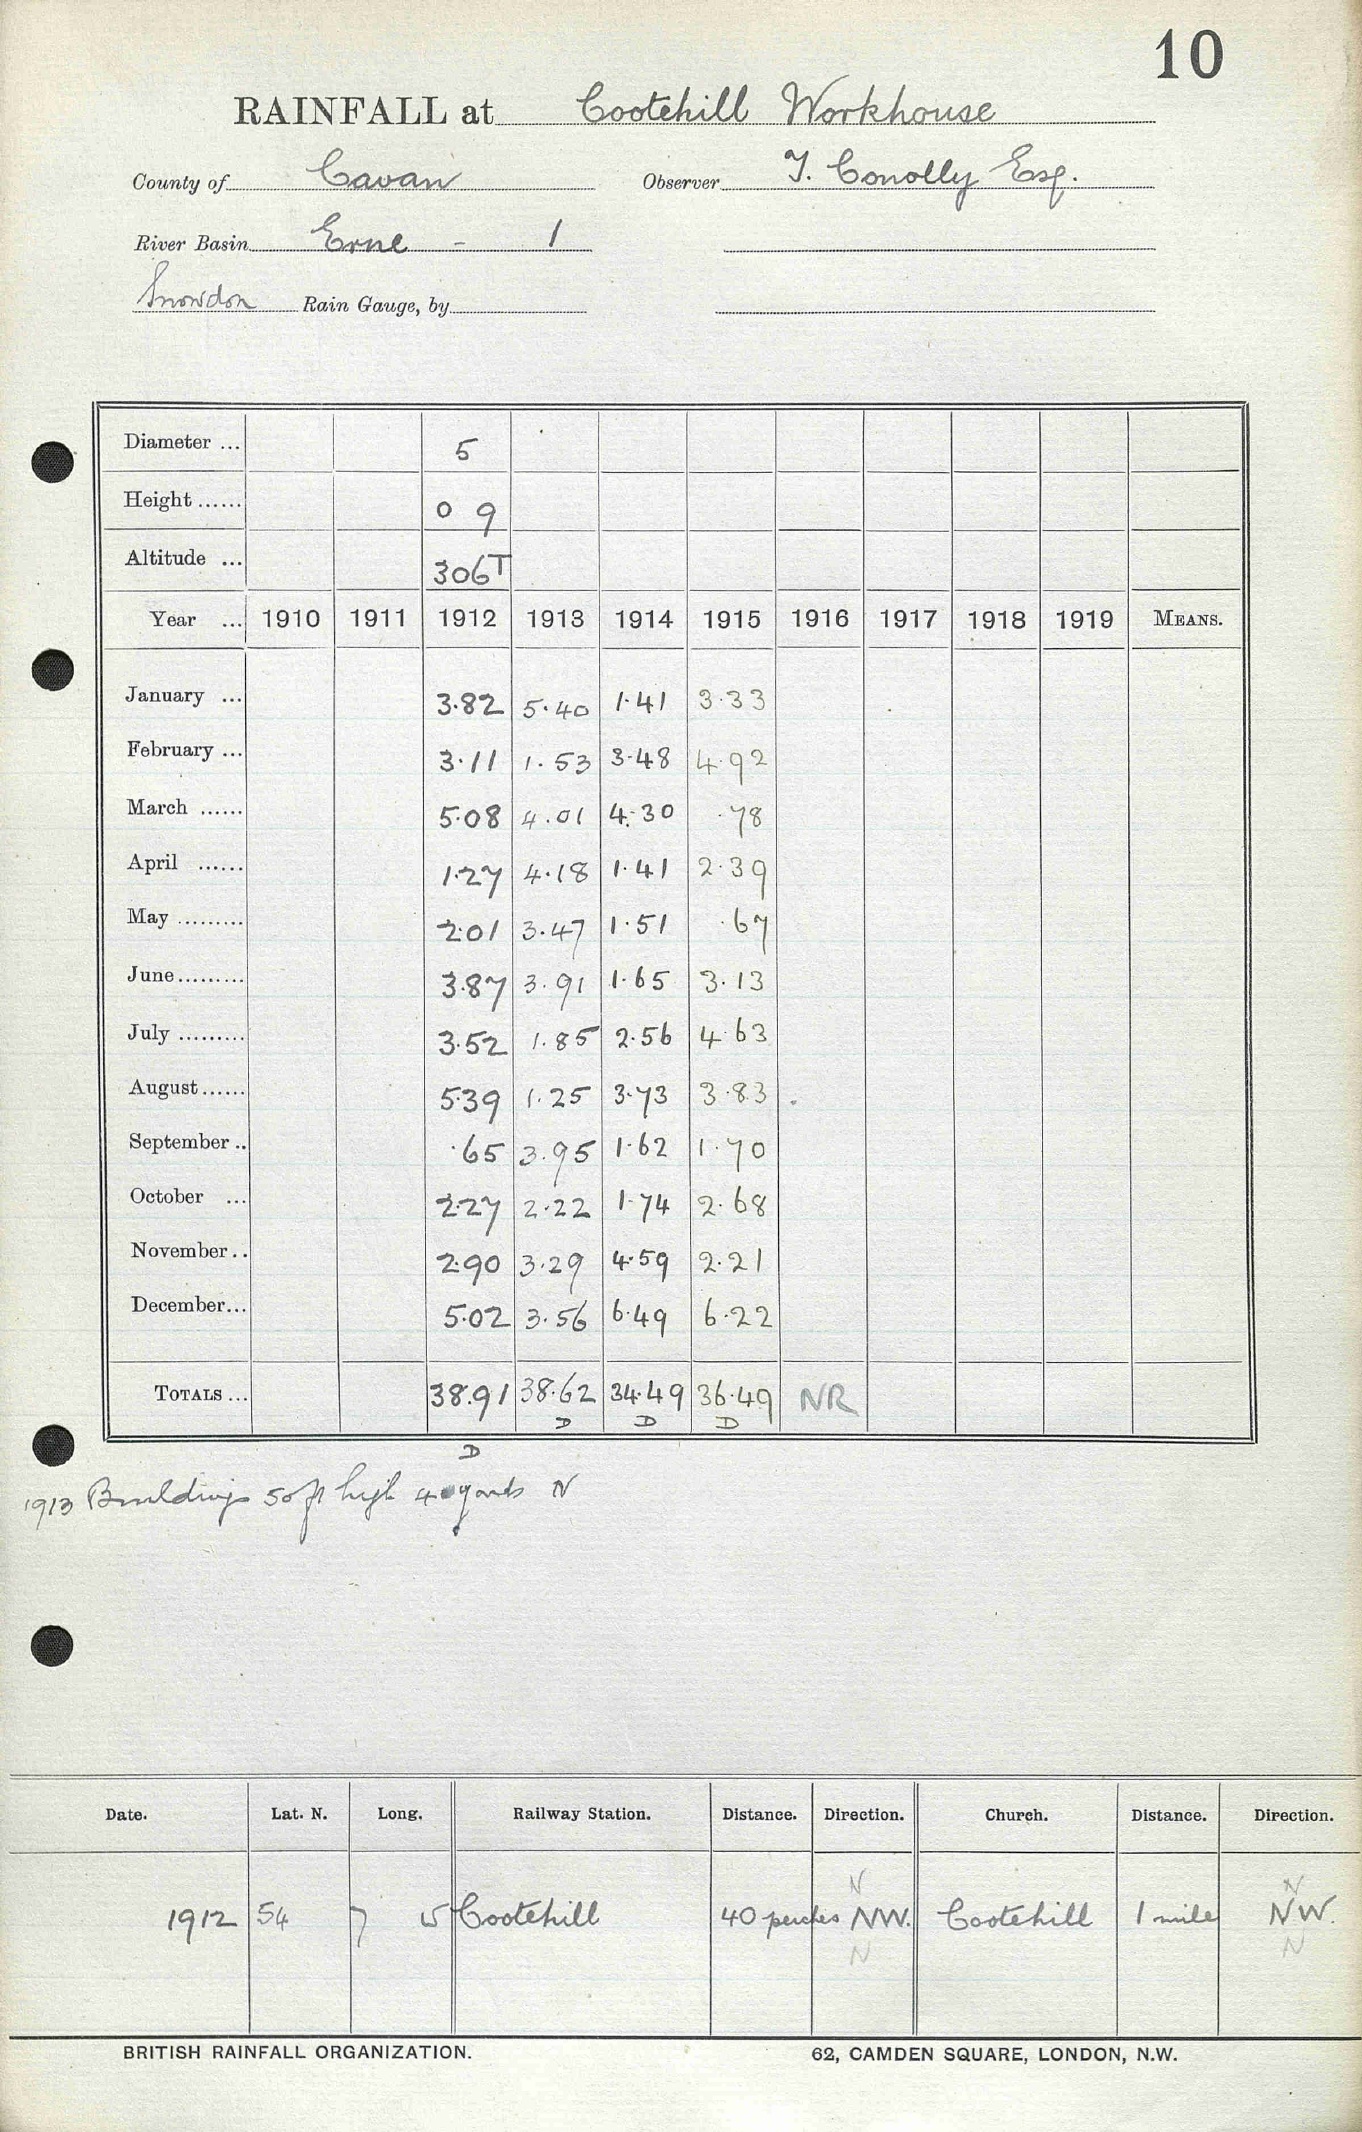 10
RAINFALL at Cootehill Workhouse
County of Cavan Observer T. Conolly Esq.
River Basin Erne - 1
Snowdon Rain Gauge, by
Diameter ... 5
Height ...... 0 9
Altitude ... 306T
Year ... 1910 1911 1912 1913 1914 1915 1916 1917 1918 1919 MEANS.
January ... 3.82 5.40 1.41 3.33
February ... 3.11 1.53 3.48 4.92
March ...... 5.08 4.01 4.30 .78
April ...... 1.27 4.18 1.41 2.39
May ......... 2.01 3.47 1.51 .67
June......... 3.87 3.91 1.65 3.13
July ......... 3.52 1.85 2.56 4.63
August...... 5.39 1.25 3.73 3.83
September .. .65 3.95 1.62 1.70
October ... 2.27 2.22 1.74 2.68
November .. 2.90 3.29 4.59 2.21
December... 5.02 3.56 6.49 6.22
TOTALS ... 38.91 38.62 34.49 36.49 NR
D D D
D
1913 Buildings 50 ft high 40 yards N
Date. Lat. N. Long. Railway Station. Distance. Direction. Church. Distance. Direction.
N N
1912 54 7 5 Cootehill 40 perches NW. Cootehill 1 mile NW.
N N
BRITISH RAINFALL ORGANIZATION. 62, CAMDEN SQUARE, LONDON, N.W.